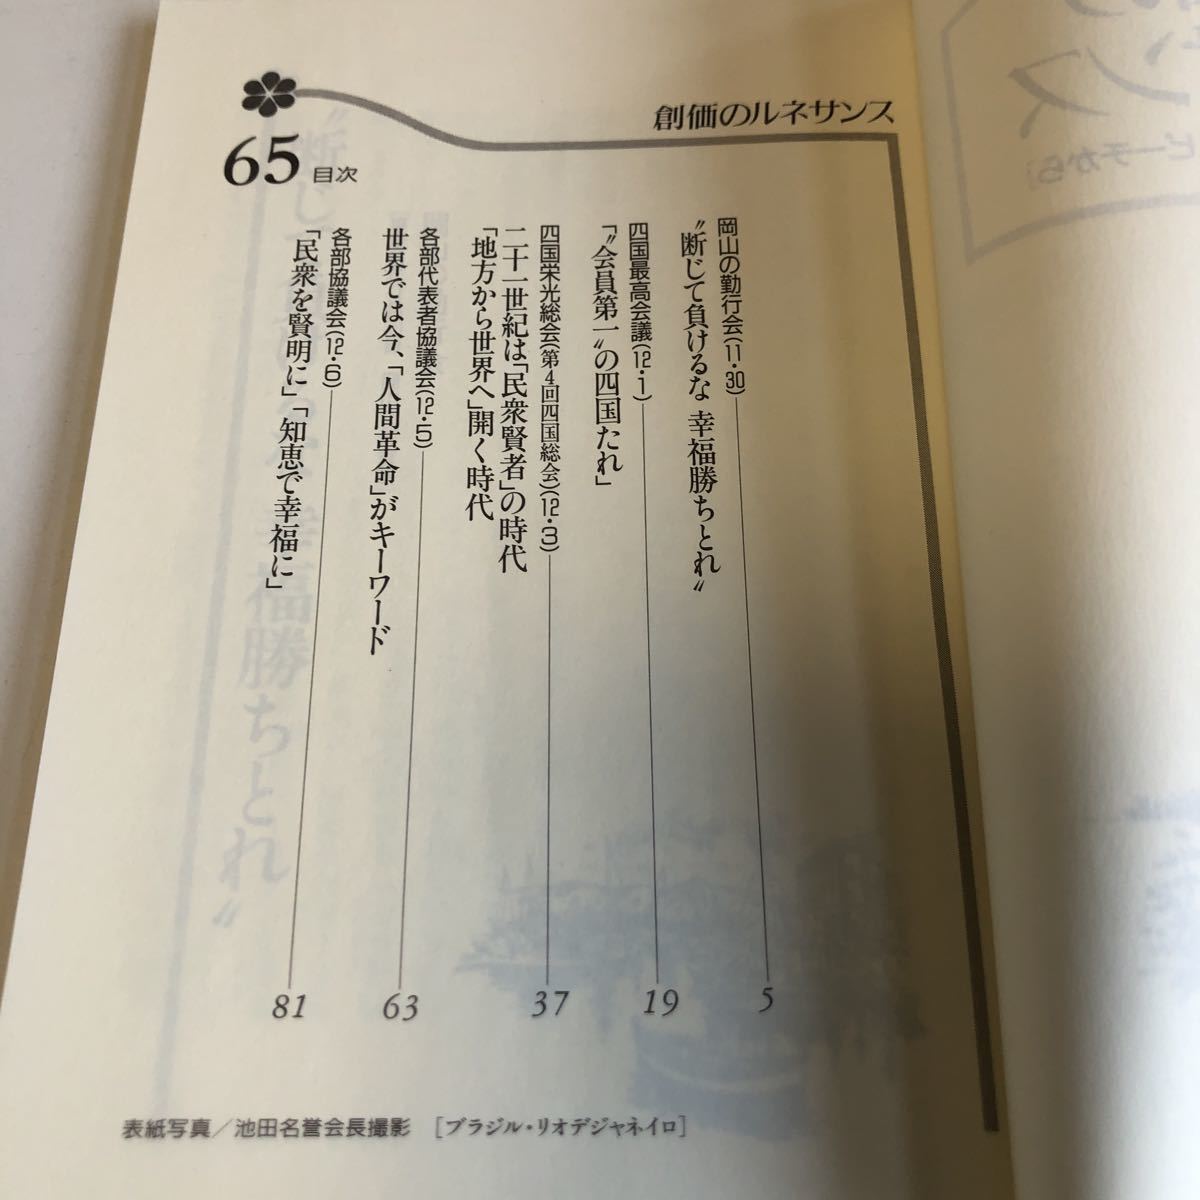 創価のルネサンス
65 目次
岡山の勤行会(11・30)
〝断じて負けるな 幸福勝ちとれ〟
5
四国最高会議(12・1)
「〝会員第一〟の四国たれ」
19
四国栄光総会(第4回四国総会)(12・3)
二十一世紀は「民衆賢者」の時代
「地方から世界へ」開く時代
37
各部代表者協議会(12・5)
世界では今、「人間革命」がキーワード
63
各部協議会(12・6)
「民衆を賢明に」「知恵で幸福に」
81
表紙写真/池田名誉会長撮影 [ブラジル・リオデジャネイロ]